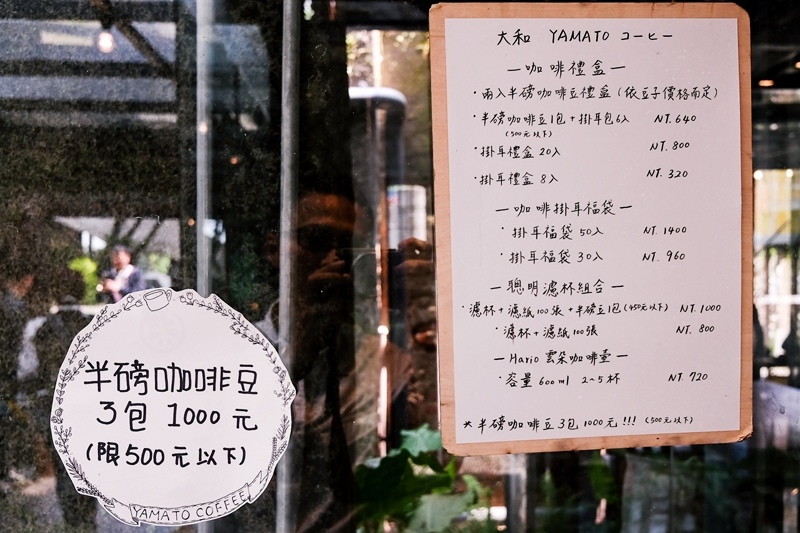 大和 YAMATO コーヒー
—咖啡禮盒—
·兩入半磅咖啡豆禮盒(依豆子價格而定)
·半磅咖啡豆1包+掛耳包6入 NT.640
(500元以下)
·掛耳禮盒20入 NT.800
·掛耳禮盒8入 NT.320
—咖啡掛耳福袋—
·掛耳福袋50入 NT.1400
·掛耳福袋30入 NT.960
—聰明濾杯組合—
·濾杯+濾紙100張+半磅豆1包(450元以下) NT.1000
·濾杯+濾紙100張 NT.800
—Hario雲朵咖啡壺—
容量600ml 2~5杯 NT.720
*半磅咖啡豆3包1000元!!! (500元以下)
半磅咖啡豆
3包 1000元
(限500元以下)
YAMATO COFFEE